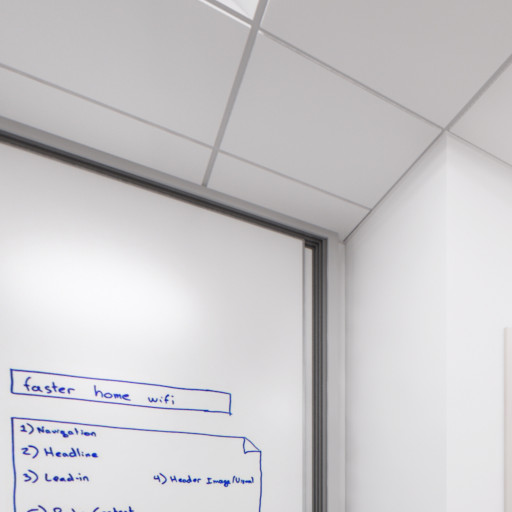 faster home wifi
1) Navigation
2) Headline
3) Lead-in 4) Header Image/Visual